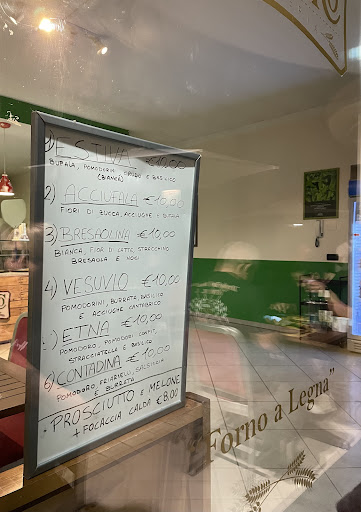 1) ESTIVA €10,00
BUFALA, POMODORO CRUDO E BASILICO
(BIANCA)
2) ACCIUFALA €10,00
FIORI DI ZUCCA, ACCIUGHE
3) BRESAOLINA €10,00
BIANCA, FIOR DI LATTE, STRACCHINO
BRESAOLA E NOCI
4) VESUVIO €10,00
POMODORINI, BURRATA, BASILICO
E ACCIUGHE CANTABRICO
) ETNA €10,00
POMODORO, POMODORI CONFIT,
STRACCIATELLA E BASILICO
6) CONTADINA €10,00
POMODORO FRIARIELLI, SALSICCIA
E BURRATA
• PROSCIUTTO E MELONE
+ FOCACCIA CALDA €8,00
"Forno a Legna"